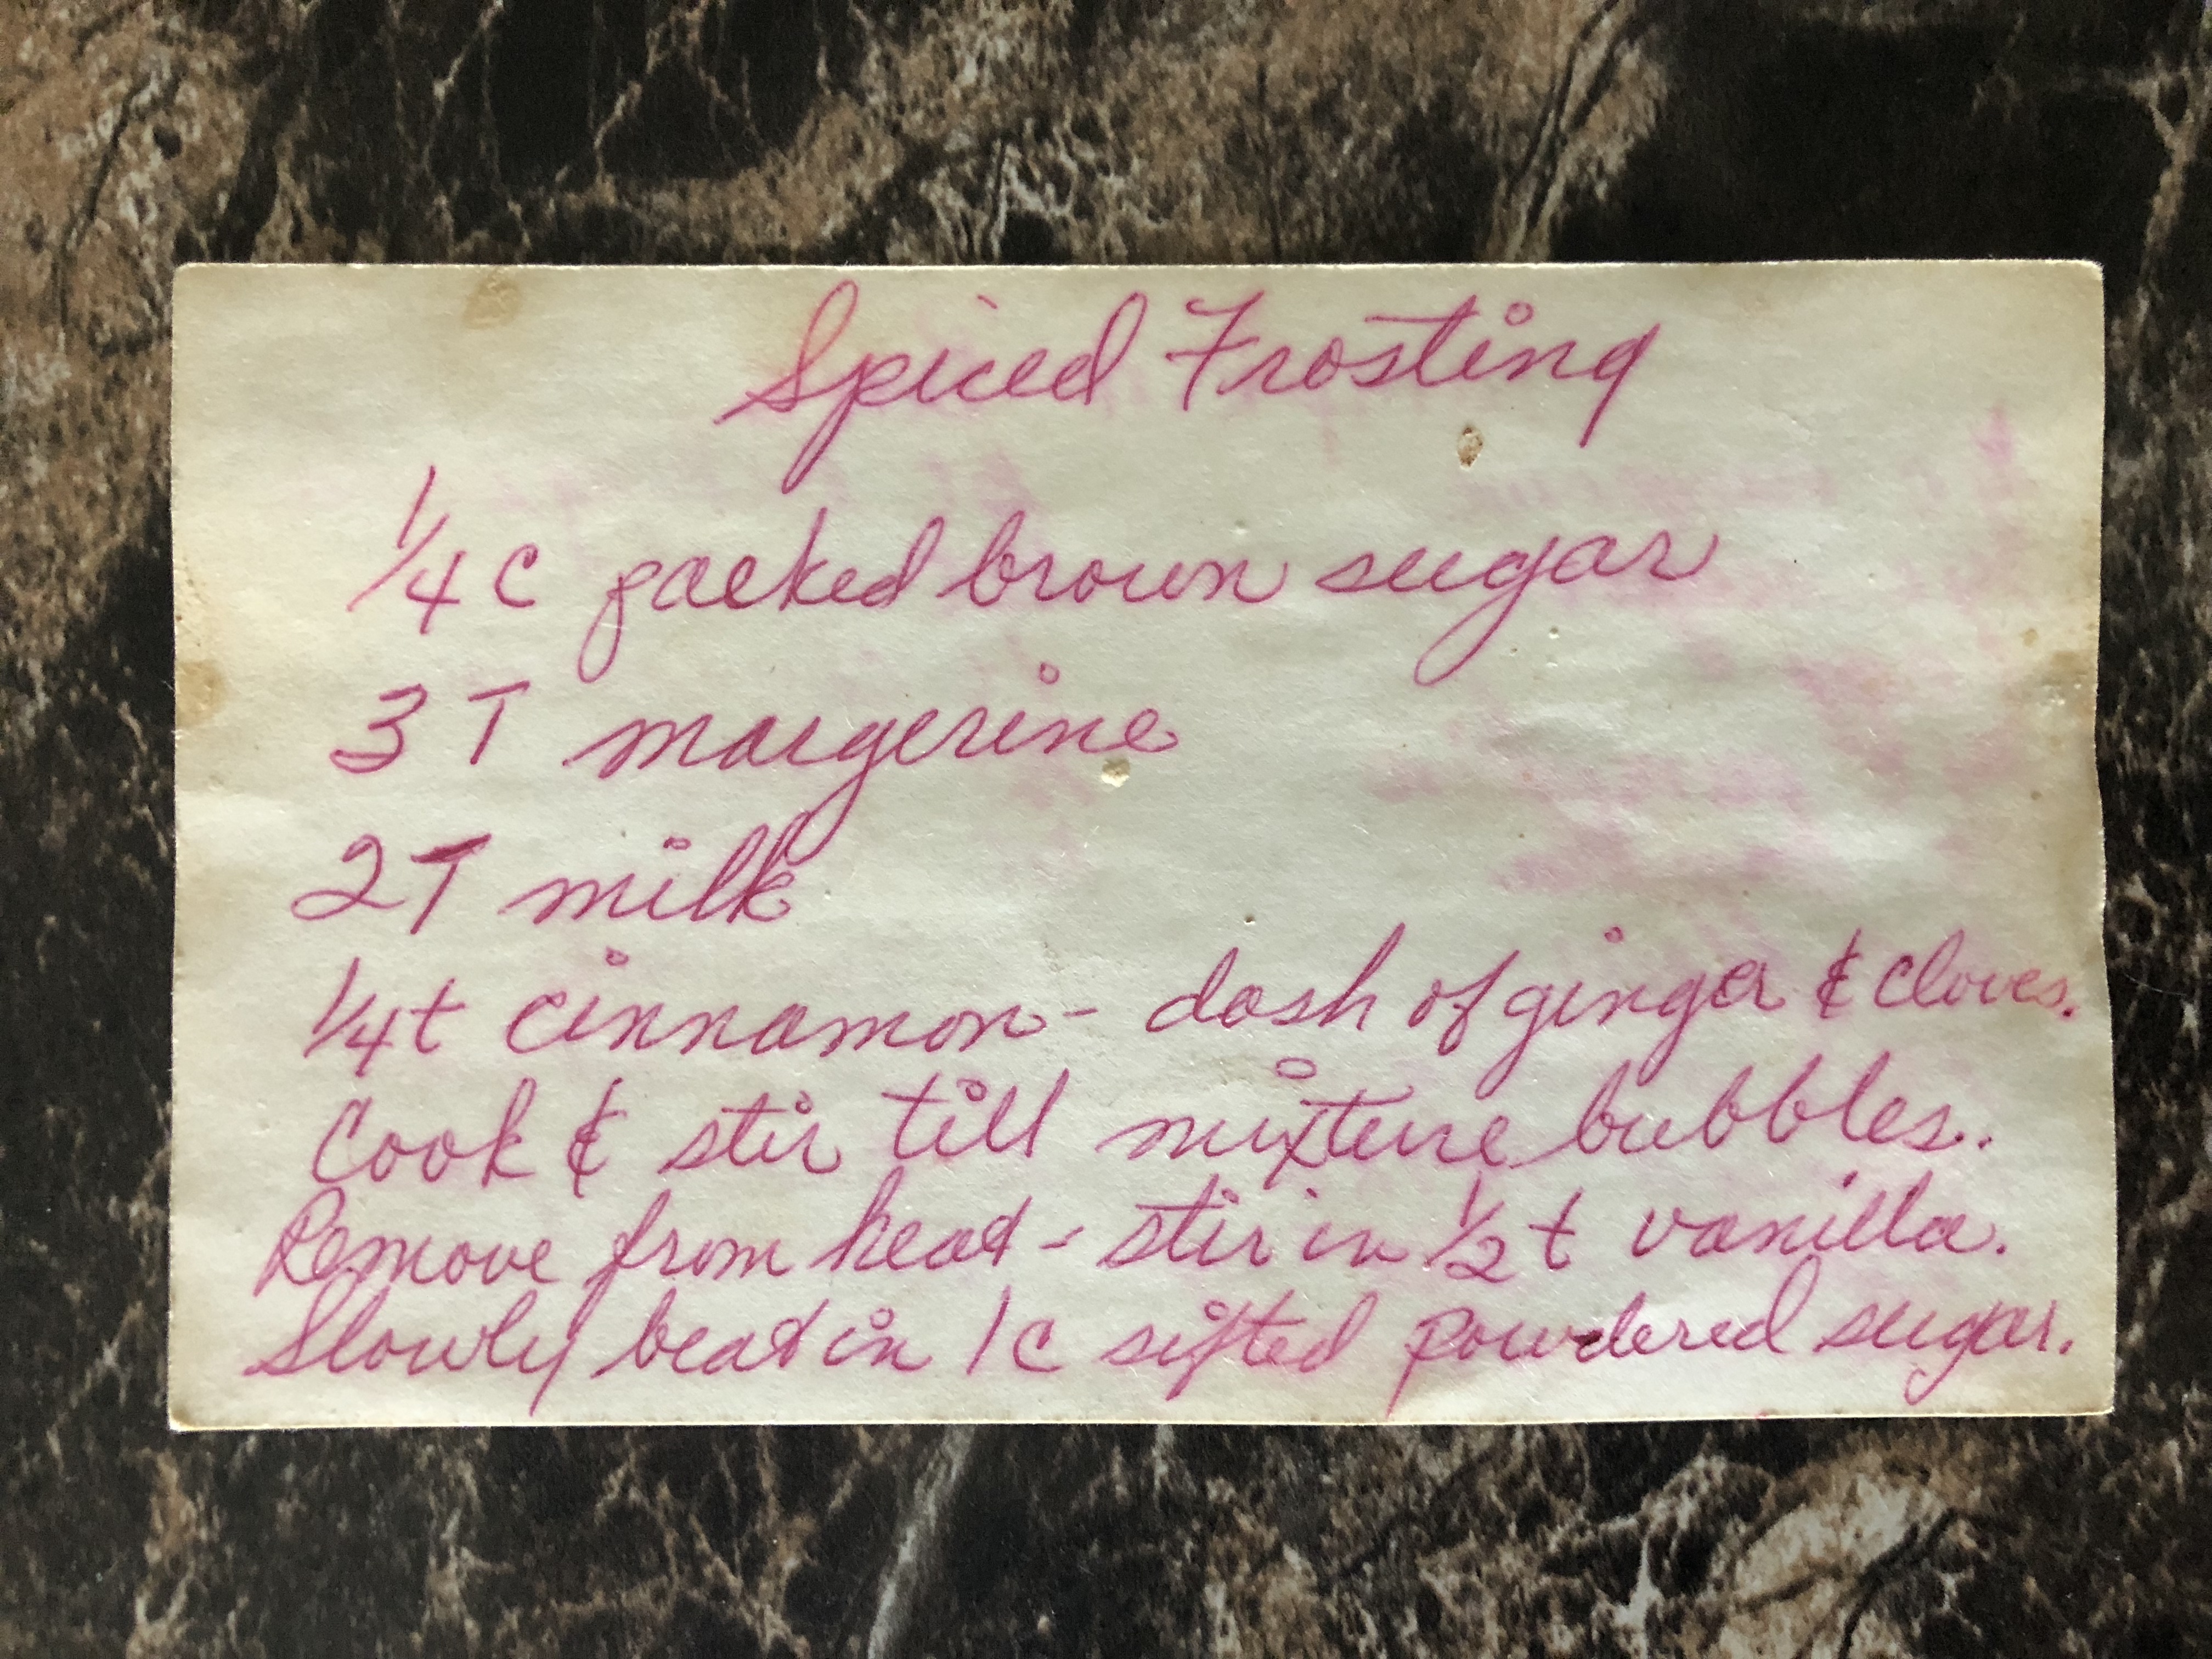 Spiced Frosting
1/4 c packed brown sugar
3 T margerine
2 T milk
1/4 t cinnamon - dash of ginger & cloves.
Cook & stir till mixture bubbles.
Remove from heat - stir in 1/2 t vanilla.
Slowly beat in 1 c sifted powdered sugar.